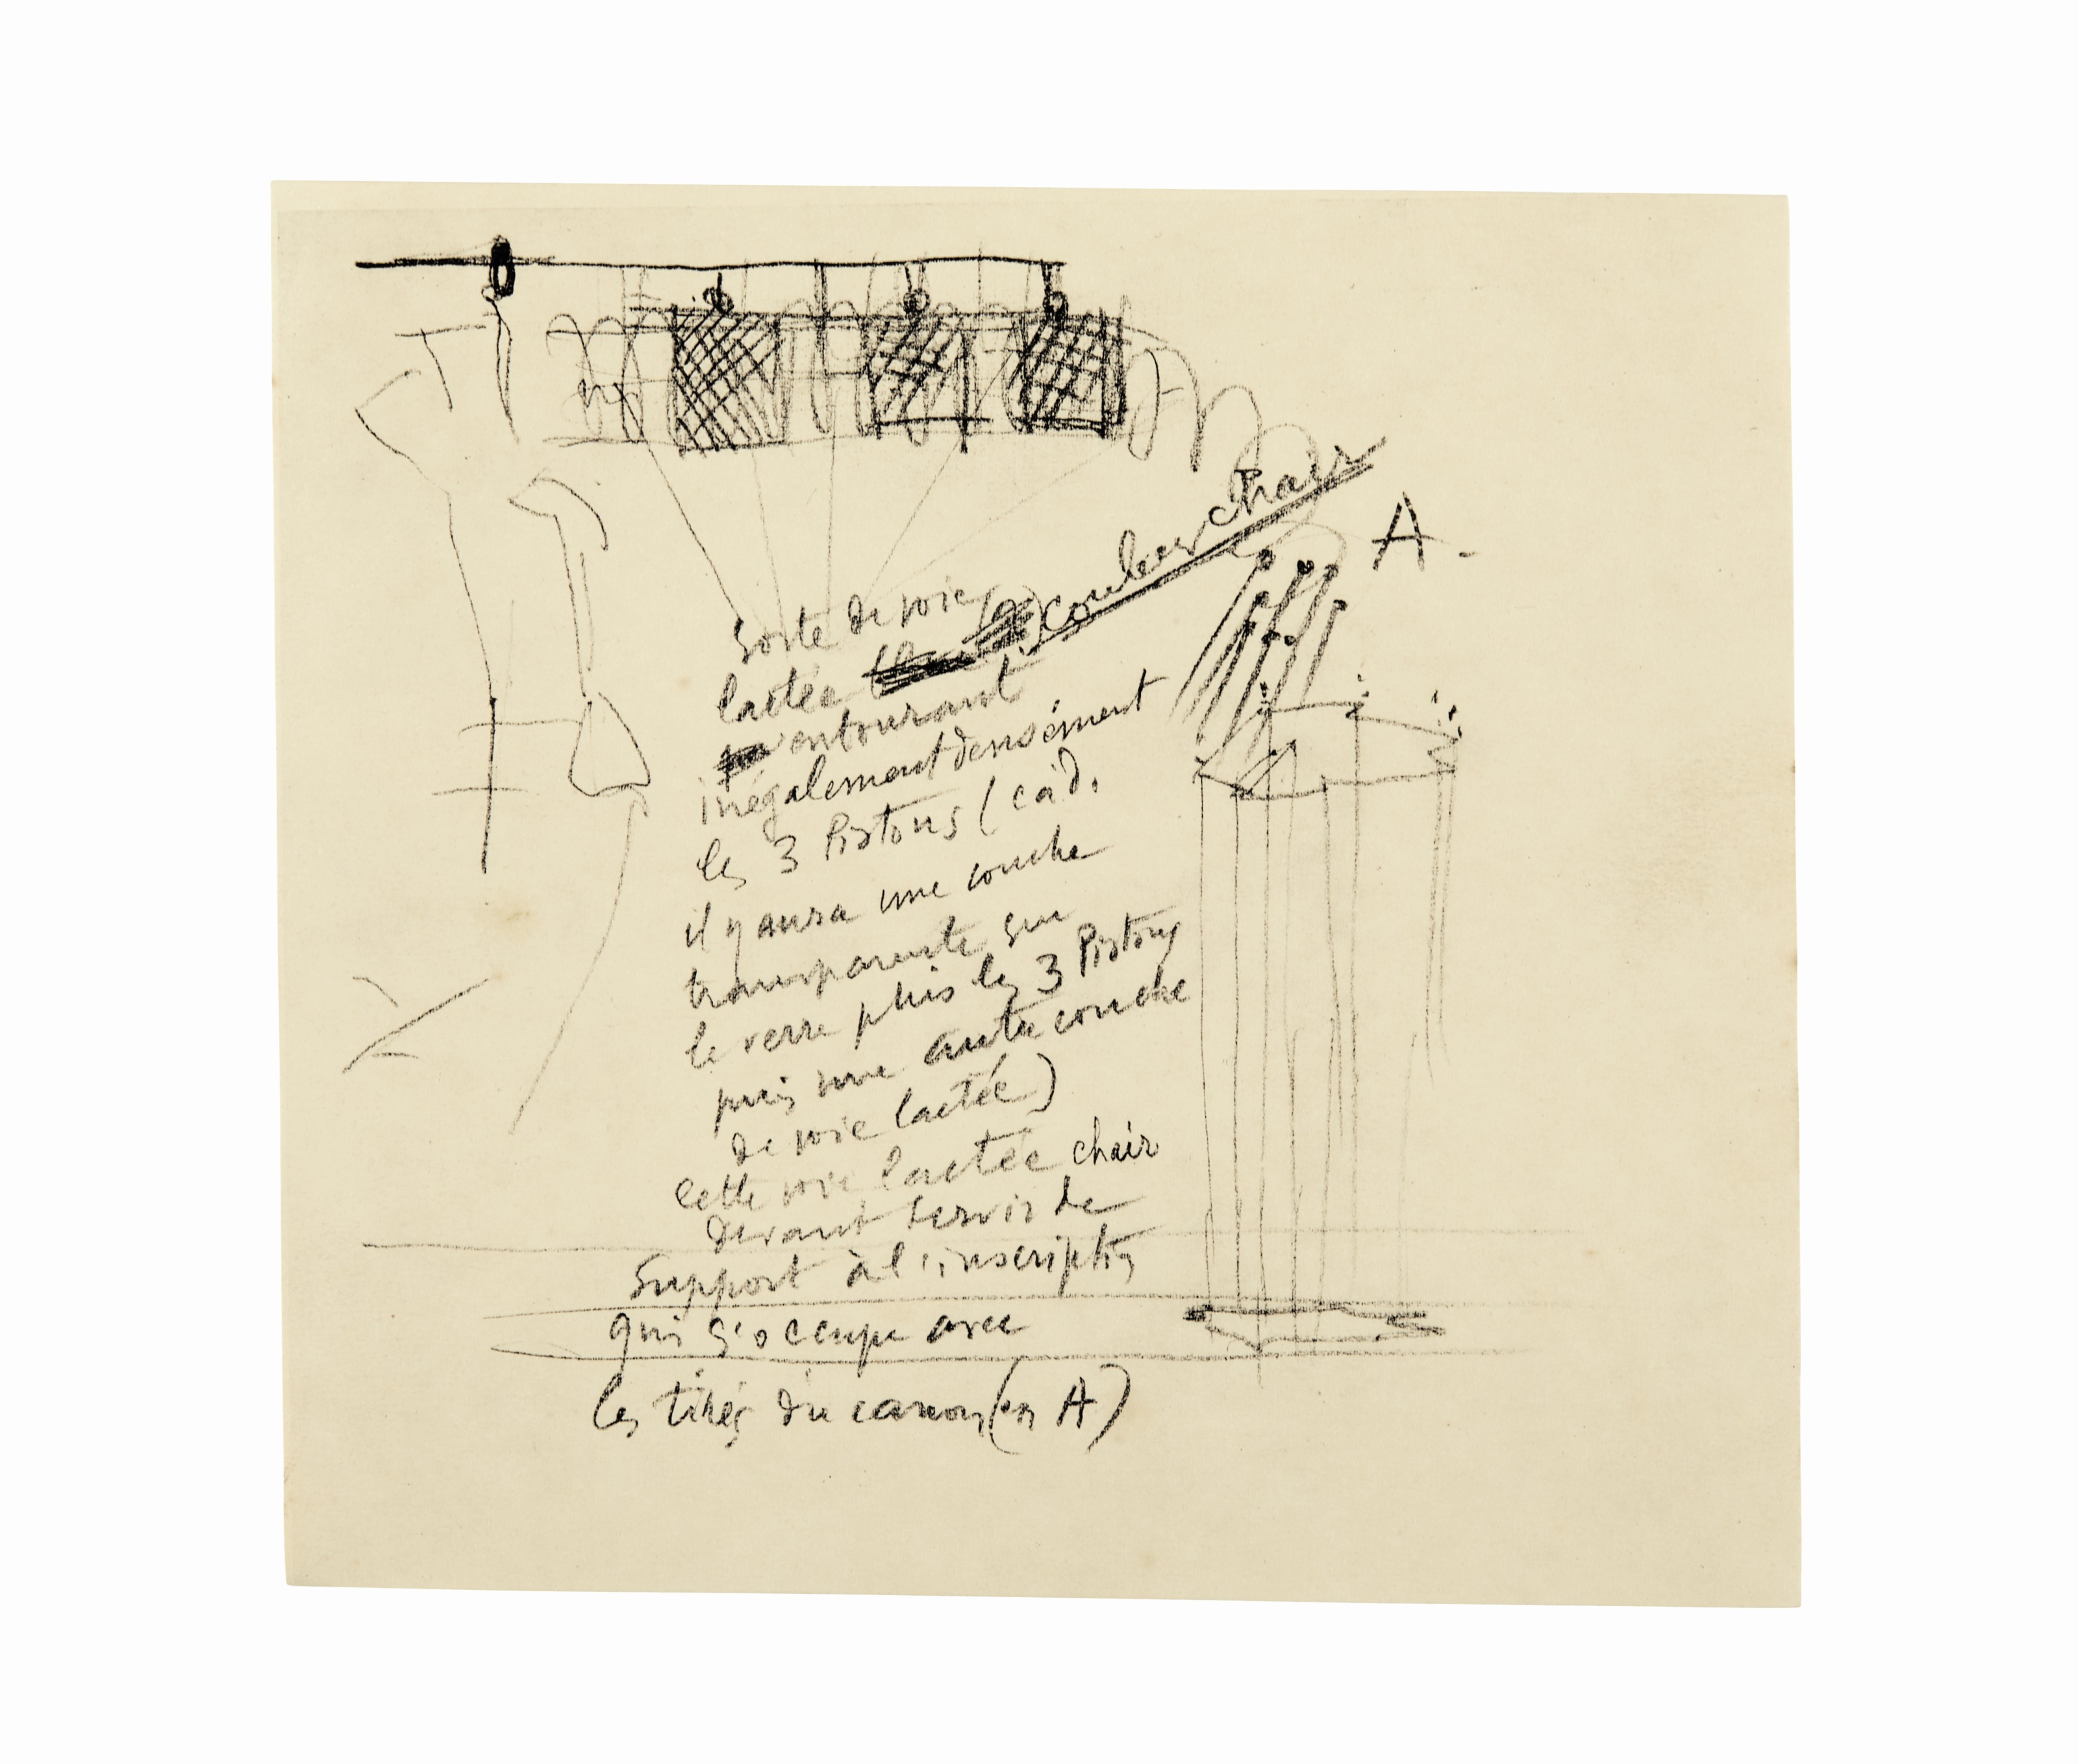 A.
Sorte de voie
lactée couleur chair
entourant
inégalement densément
les 3 Pistons (càd.
il y aura une couche
transparente sur
le verre plus les 3 Pistons
puis une autre couche
de voie lactée)
Cette voie lactée chair
devant servir de
Support à l'inscription
qui s'occupe avec
les tirés du canon (en A)